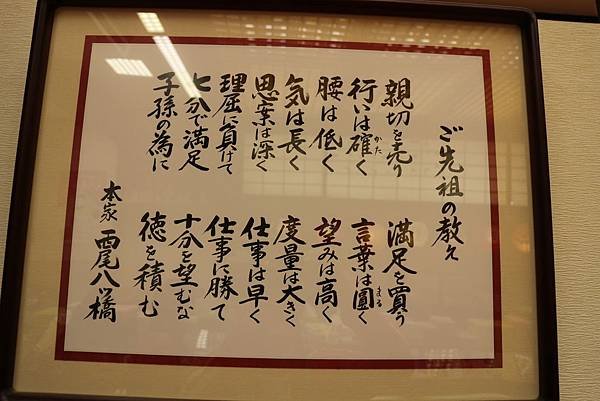 ご先祖の教え
親切を売り 満足を買う
行いは確(かた)く 言葉は圓(まる)く
腰は低く 望みは高く
気は長く 度量は大きく
思案は深く 仕事は早く
理屈に負けて 仕事に勝て
七分で満足 十分を望むな
子孫の為に 徳を積む
本家 西尾八ッ橋